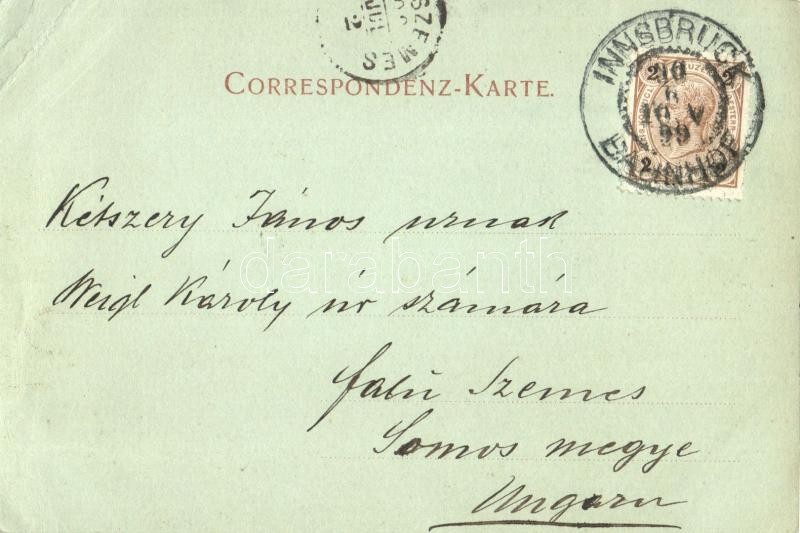 SZEMES
CORRESPONDENZ-KARTE.
INNSBRUCK
BAHNHOF
20
6
10 V
99
Kétszery János urnak
Weigl Károly úr számára
falú Szemes
Somos megye
Ungarn
darabanth